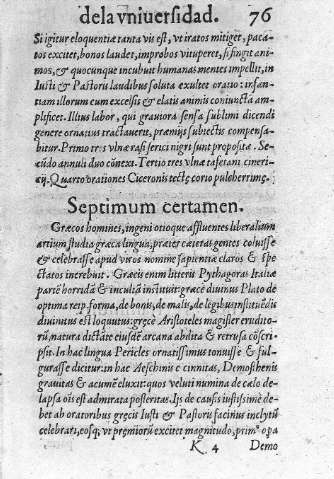 dela vniuersidad. 76
Si igitur eloquentiæ tanta vis est, vt iratos mitiget, pacatos excitet, bonos laudet, improbos vituperet,
animos, & quocunque incubuit humanas mentes impellit, in
Iusti & Pastoru laudibus soluta exultet oratio: infantiam illorum cum excelsis & elatis animis coniuncta amplificet. Illius labor, qui grauiora sensa sublimi dicendi
genere ornatius tractauerit, præmijs subiectis compensabitur. Primo tres vlnæ rasi serici nigri sunt proposita. Secũdo annuli duo cõnext. Tertio tres vlnæ rasetani
Quarto orationes Ciceronis tectę corio pulcherrimę.
Septimum certamen.
Græcos homines, ingeni otioque affluentes liberalium
artium studia græca lingua, præter cæteras gentes coluisse
& celebrasse apud viros nomine sapientiæ claros & spectatos increbuit. Græcis enim literis Pythagoras Italiæ
partẽ horridã & incultã instituit: græcè diuinus Plato de
optima reip. forma, de bonis, de malis, de legibus instituẽdis
diuinitus est loquutus: grecè Aristoteles magister eruditorũ, natura dictãte eiusdẽ arcana abdita & retrusa cõscripsit. In hac lingua Pericles ornatissimus tonuisse & fulgurasse dicitur. in hac Aeschinis cõcinnitas, Demosthenis
grauitas & acumẽ eluxit: quos veluti numina de cælo delapsa ois est admirata posteritas. Ijs de causis iustissimè debet ab oratoribus grecis Iusti & Pastoru facinus inclytũ
celebrari, eosq; vt premiorũ excitet magnitudo, primo opa
K 4 Demo